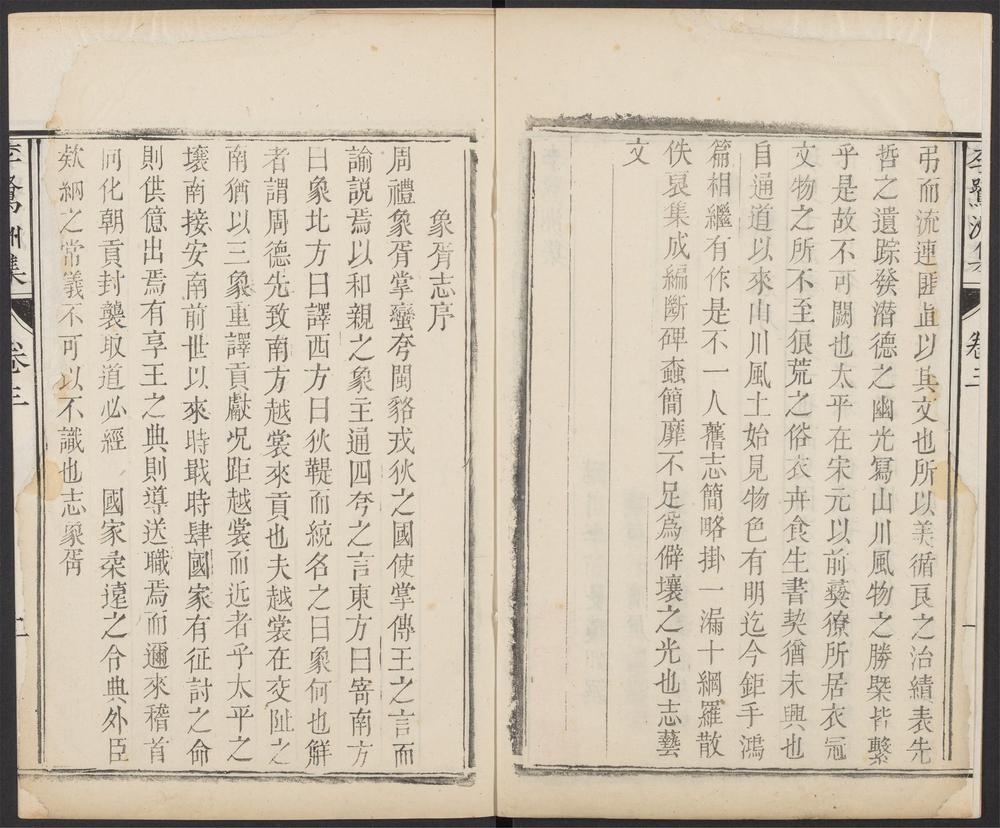 弔而流連匪直以其文也所以美循良之治績表先
哲之遺踪發潛德之幽光寫山川風物之勝槩皆繫
乎是故不可闕也太平在宋元以前㺜獠所居衣冠
文物之所不至狠荒之俗衣卉食生書契猶未興也
自通道以來山川風土始見物色有明迄今鉅手鴻
篇相繼有作是不一人舊志簡略掛一漏十網羅散
佚裒集成編斷碑蠧簡靡不足為僻壤之光也志藝
文
象胥志序
周禮象胥掌蠻夸閩貉戎狄之國使掌傳王之言而
諭說焉以和親之象主通四夸之言東方曰寄南方
曰象北方曰譯西方曰狄鞮而統名之曰象何也觧
者謂周德先致南方越裳來貢也夫越裳在交阯之
南猶以三象重譯貢獻况距越裳而近者乎太平之
壤南接安南前世以來時戢時肆國家有征討之命
則供億出焉有享王之典則導送職焉而邇來稽首
向化朝貢封襲取道必經 國家柔遠之令典外臣
欵納之常儀不可以不識也志象胥
李鷺洲集
卷三